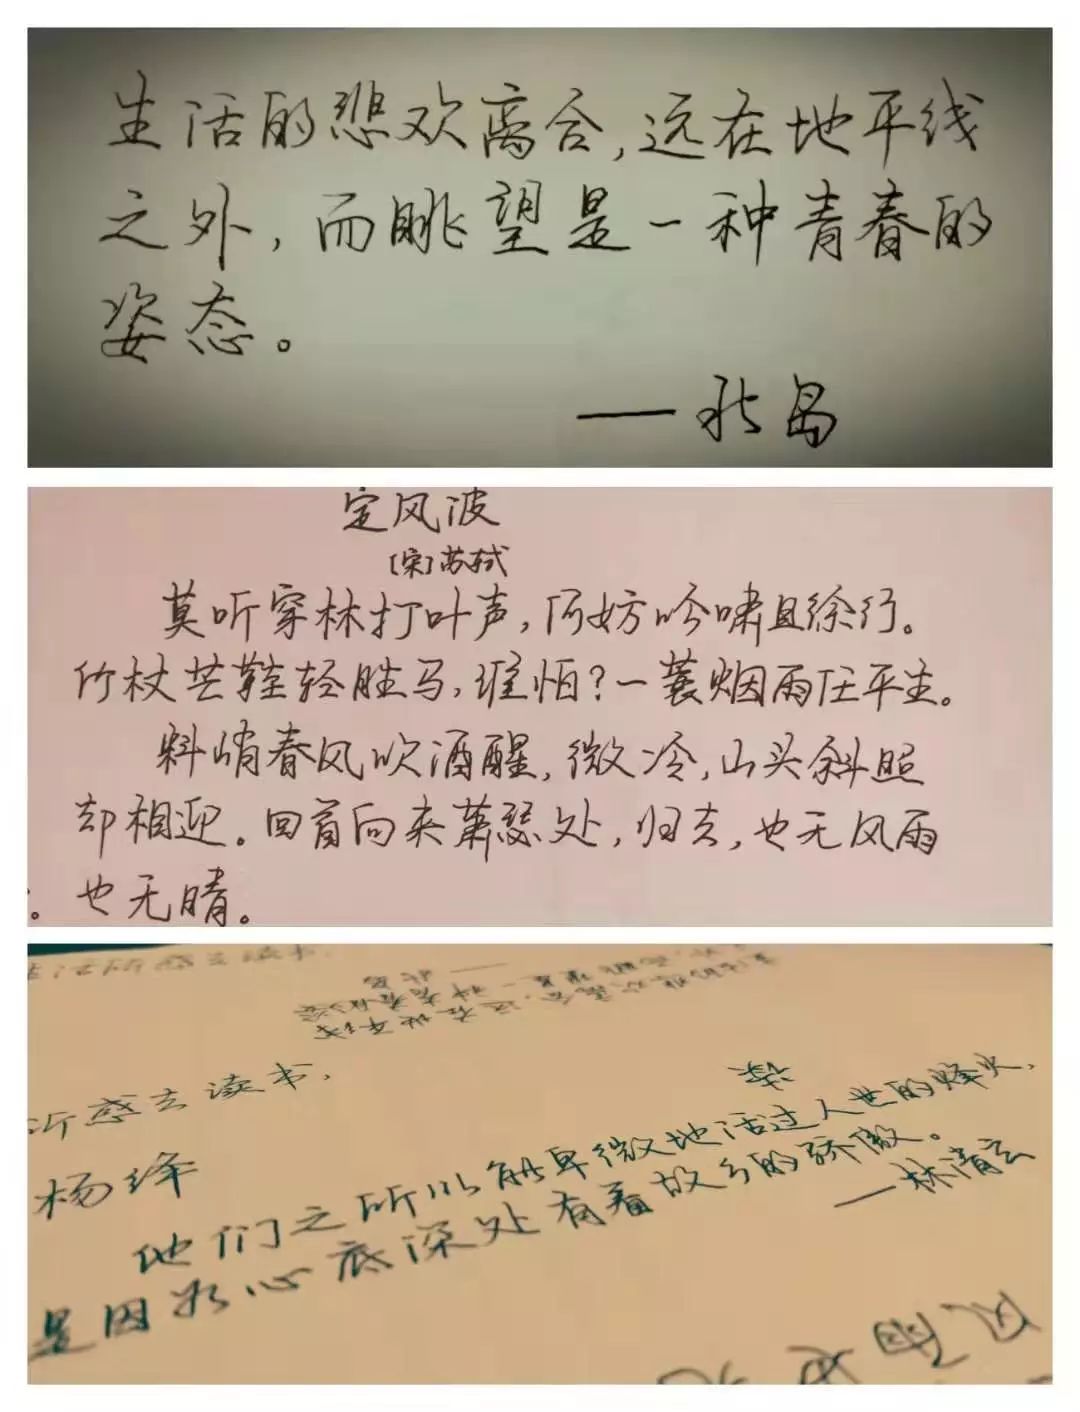 生活的悲欢离合,远在地平线
之外,而眺望是一种青春的
姿态。
——北岛
定风波
[宋]苏轼
莫听穿林打叶声,何妨吟啸且徐行。
竹杖芒鞋轻胜马,谁怕?一蓑烟雨任平生。
料峭春风吹酒醒,微冷,山头斜照
却相迎。回首向来萧瑟处,归去,也无风雨
。也无晴。
所惑去读书.
杨绛
他们之所以能卑微地活过人世的烽火,
是因为心底深处有着故乡的骄傲。
——林清玄